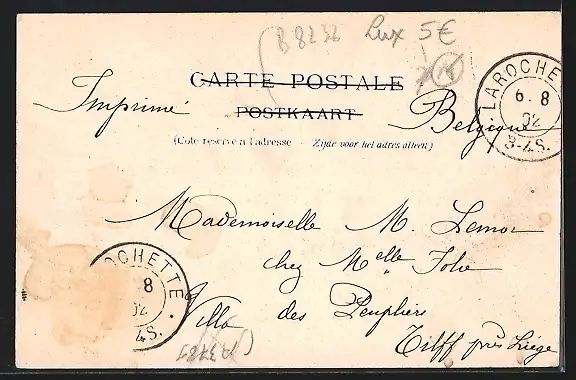 B 8232 Lux 5€
CARTE POSTALE
Imprimé
POSTKAART
Belgique
LAROCHE
6. 8
02
3-4S.
(Côté réservé à l'adresse - Zijde voor het adres alleen)
Mademoiselle M. Lemoi
chez Melle Jolie
OCHETTE
8
02
4S.
Villa des Peupliers
Tilff près Liège